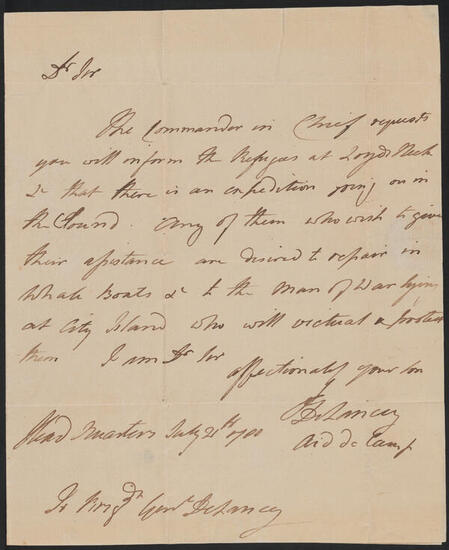 Dr Sir
The Commander in Chief requests
you will inform the Refugees at Loyds Neck
&c that there is an expedition going on in
the Sound. any of them who wish to give
their assistance are desired to repair in
Whale Boats &c to the Man of War lying
at City Island who will victual & protect
them I am Dr Sir
affectionately your Son
DeLancey
Aid de Camp
Head Quarters July 21st 1780
To Brigdr Genl DeLancey